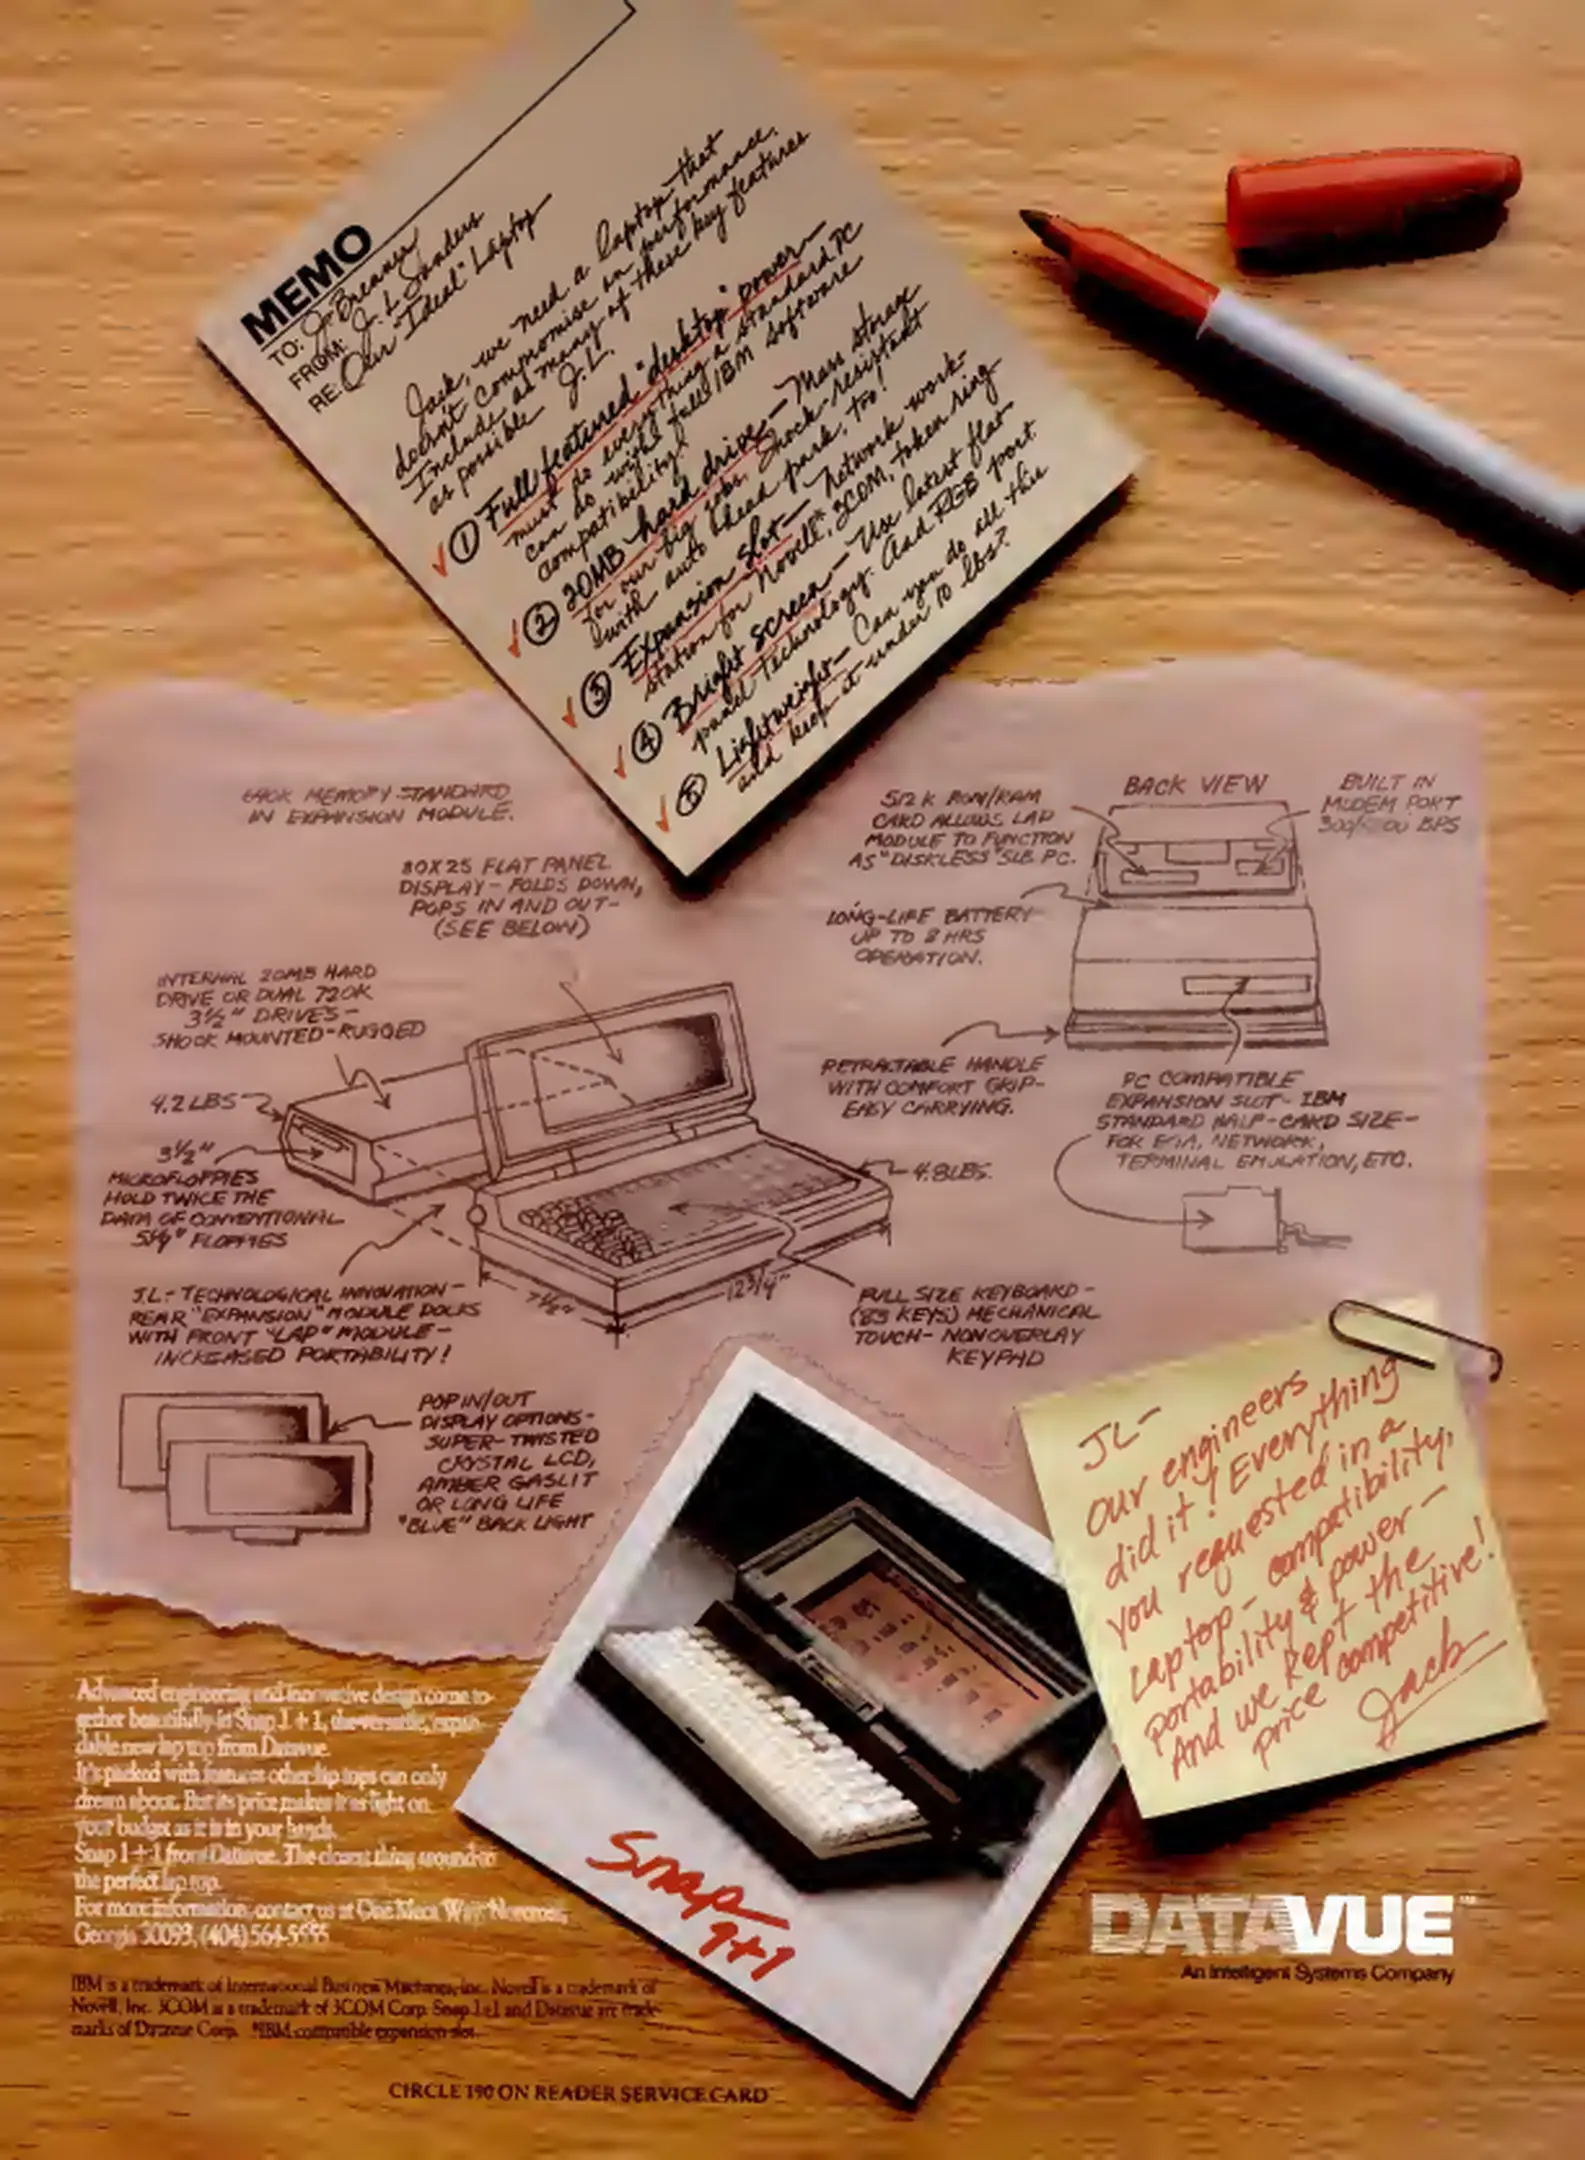 MEMO
TO: J. Breaner
FROM: J. L. Sanders
RE: Our "Ideal" Laptop
Jack, we need a laptop that
doesn't compromise on performance.
Include as many of these key features
as possible J.L.
① Full featured "desktop" power—
must do everything a standard PC
can do with full IBM software
compatibility!
② 20MB hard drive— Mass storage
for our big jobs. Shock-resistant
with auto head park, too!
③ Expansion slot— Network work-
station for Novell*, 3COM, token ring
④ Bright screen— Use latest flat
panel technology. And RGB port.
⑤ Lightweight— Can you do all this
and keep it under 10 lbs?
640K MEMORY STANDARD
IN EXPANSION MODULE.
80X25 FLAT PANEL
DISPLAY- FOLDS DOWN,
POPS IN AND OUT-
(SEE BELOW)
INTERNAL 20MB HARD
DRIVE OR DUAL 720K
3½" DRIVES-
SHOCK MOUNTED-RUGGED
4.2 LBS
3½"
MICROFLOPPIES
HOLD TWICE THE
DATA OF CONVENTIONAL
5¼" FLOPPIES
J.L.- TECHNOLOGICAL INNOVATION-
REAR "EXPANSION" MODULE DOCKS
WITH FRONT "LAP" MODULE-
INCREASED PORTABILITY!
POP IN/OUT
DISPLAY OPTIONS-
SUPER-TWISTED
CRYSTAL LCD,
AMBER GASLIT
OR LONG LIFE
"BLUE" BACK LIGHT
12¾"
4.8LBS.
FULL SIZE KEYBOARD-
(83 KEYS) MECHANICAL
TOUCH- NONOVERLAY
KEYPAD
BACK VIEW
512K ROM/RAM
CARD ALLOWS LAP
MODULE TO FUNCTION
AS "DISKLESS" PC.
BUILT IN
MODEM PORT
BPS
LONG-LIFE BATTERY
UP TO 8 HRS
OPERATION.
RETRACTABLE HANDLE
WITH COMFORT GRIP-
EASY CARRYING.
PC COMPATIBLE
EXPANSION SLOT- IBM
STANDARD HALF-CARD SIZE-
FOR EGA, NETWORK,
TERMINAL EMULATION, ETC.
JL—
our engineers
did it! Everything
you requested in a
Laptop- compatibility,
portability & power—
And we kept the
price competitive!
Jack
Snap
1+1
Advanced engineering and innovative design come to-
gether beautifully in Snap 1+1, the versatile, expan-
dable new lap top from Datavue.
It's packed with features other lap tops can only
dream about. But its price makes it as light on
your budget as it is in your hands.
Snap 1+1 from Datavue. The closest thing around to
the perfect lap top.
For more information, contact us at One Meca Way, Norcross,
Georgia 30093, (404) 564-5555
IBM is a trademark of International Business Machines, Inc. Novell is a trademark of
Novell, Inc. 3COM is a trademark of 3COM Corp. Snap 1+1 and Datavue are trade-
marks of Datavue Corp. *IBM compatible expansion slot.
CIRCLE 190 ON READER SERVICE CARD
DATAVUE™
An Intelligent Systems Company